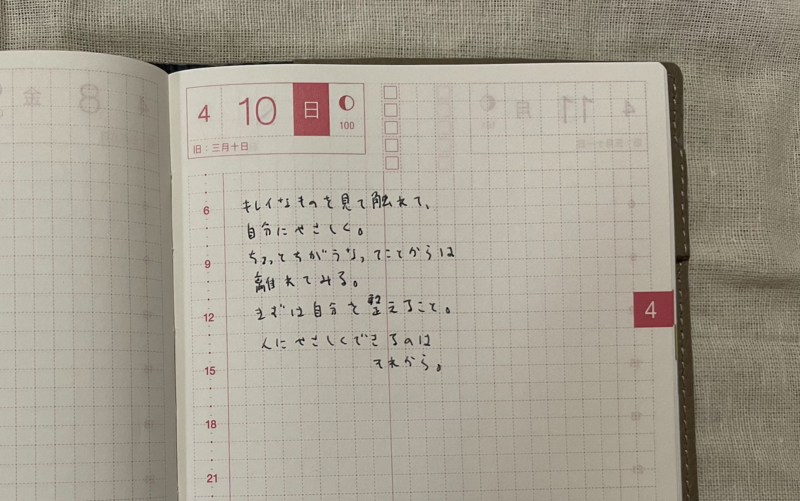 金
8
4
4
10
日
100
旧：三月十日
4
11
月
6
キレイなものを見て触れて、
自分にやさしく。
9
ちょってちがうなってことからは
離れてみる。
12
まずは自分を整えること。
4
人にやさしくできるのは
15
それから。
18
21